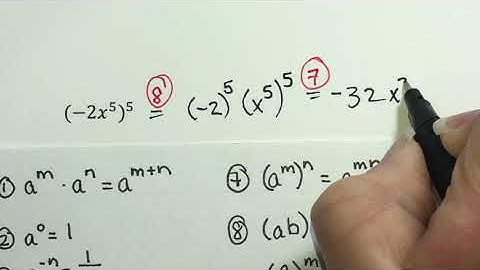 (-2x⁵)⁵ ⑧= (-2)⁵ (x⁵)⁵ ⑦= -32x
① aᵐ · aⁿ = aᵐ⁺ⁿ ⑦ (aᵐ)ⁿ = a
② a⁰ = 1 ⑧ (ab)
a⁻ⁿ = 1